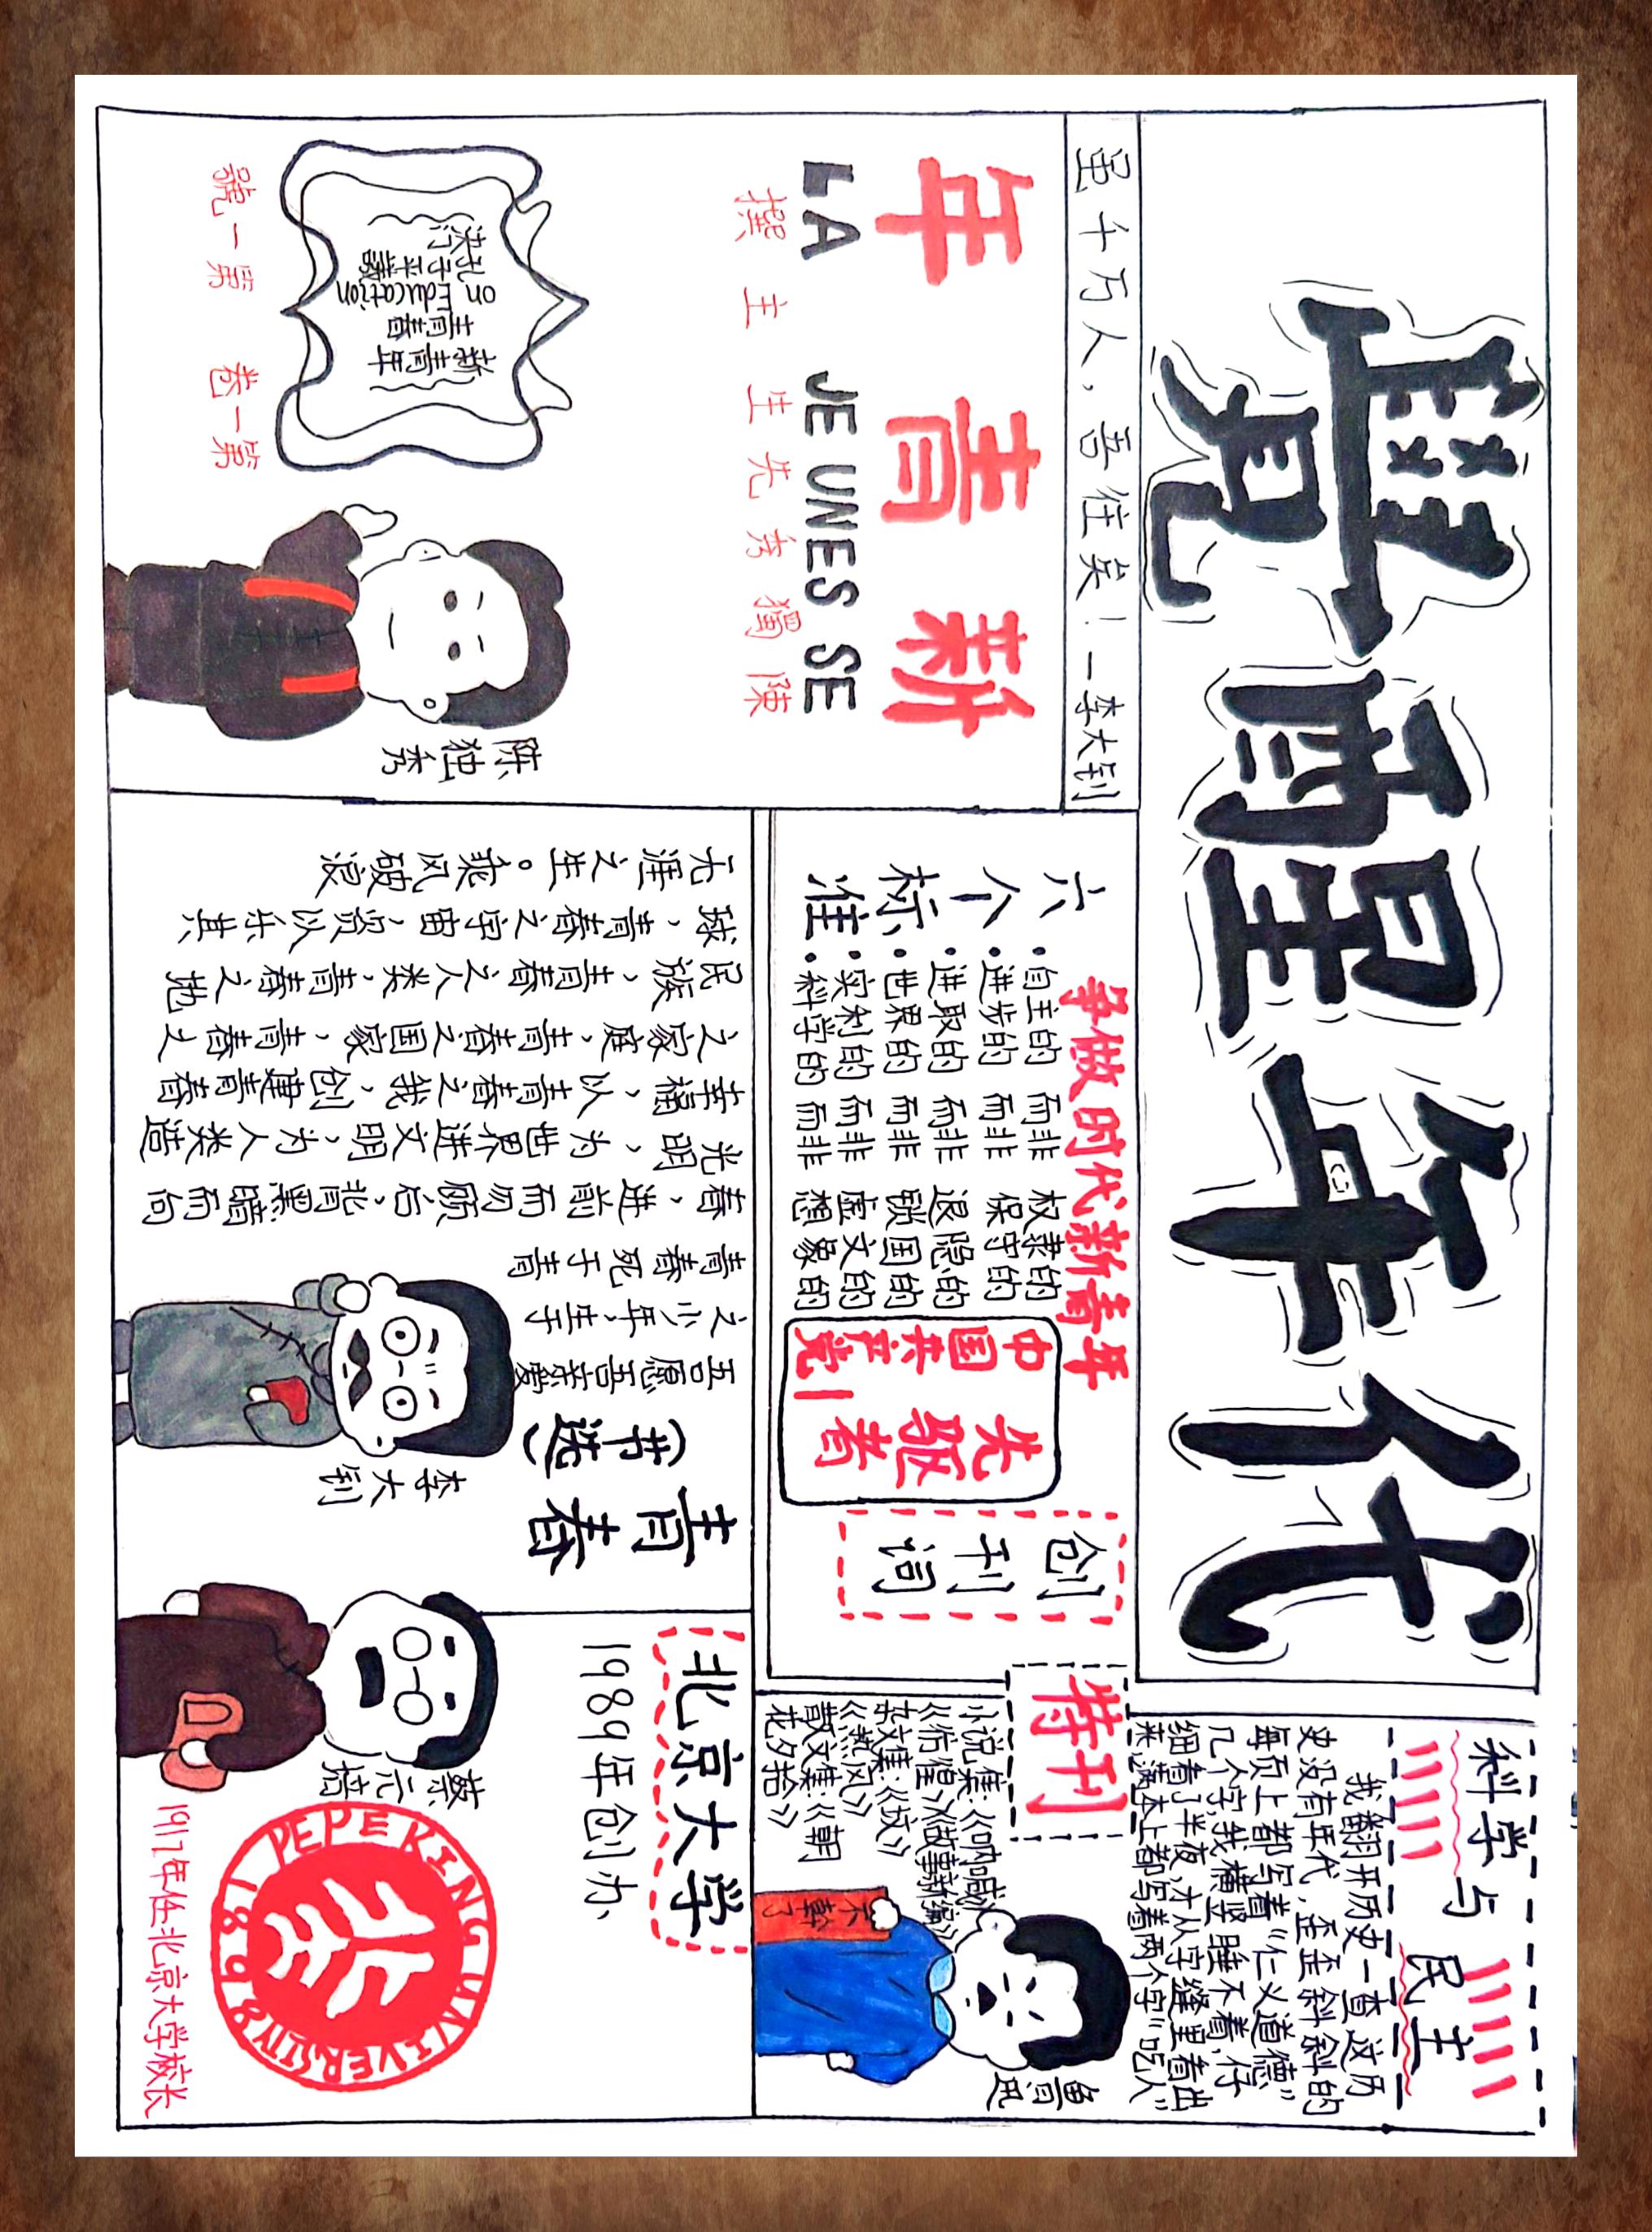 覺醒年代
虽千万人，吾往矣！—李大钊
新青年
LA JE UNES SE
陳獨秀先生主撰
新青年
青春
on Education
孔子平議
第一卷 第一號
陈独秀
争做时代新青年
创刊词
六个标准：
自主的 而非 奴隶的
进步的 而非 保守的
进取的 而非 退隐的
世界的 而非 锁国的
实利的 而非 虚文的
科学的 而非 想象的
中国共产党 |
先驱者
特刊
科学与民主
我翻开历史一查，这历
史没有年代，歪歪斜斜的
每页上都写着“仁义道德”
几个字，我横竖睡不着，仔
细看了半夜，才从字缝里看出
来，满本上都写着两个字“吃人”
小说集：《呐喊》
《彷徨》《故事新编》
杂文集：《坟》
《热风》
散文集：《朝
花夕拾》
不幹了
鲁迅
青春
（节选）
吾愿吾亲爱
之少年，生于
青春死于青
春，进前而勿顾后，背黑暗而向
光明，为世界进文明，为人类造
幸福，以青春之我，创建青春
之家庭，青春之国家，青春之
民族，青春之人类，青春之地
球，青春之宇宙，资以乐其
无涯之生。乘风破浪
李大钊
北京大学
1989年创办
蔡元培
PEPEKING UNIVERSITY 1898
1917年任北京大学校长